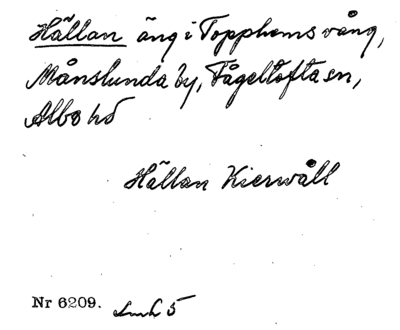 Hällan äng i Topphems vång,
Månslunda by, Fågeltofta sn,
Albo hd
Hällan Kierwåll
Nr 6209. Lmh 5